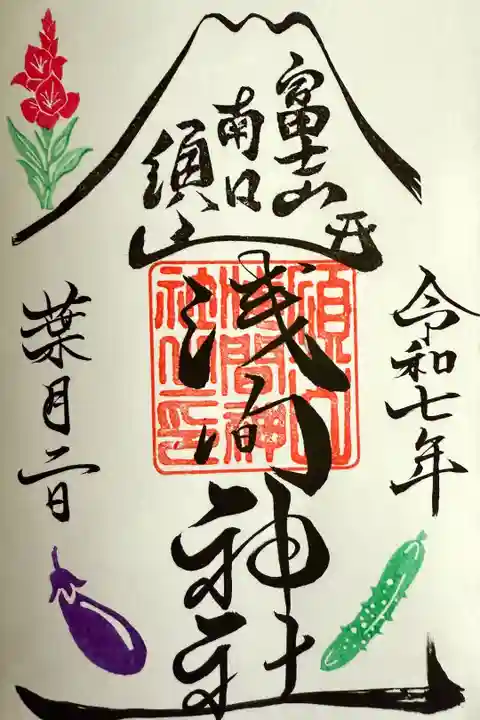 富士山
南口
須山
浅间神社
須山
浅間神
社之印
令和七年
葉月二日